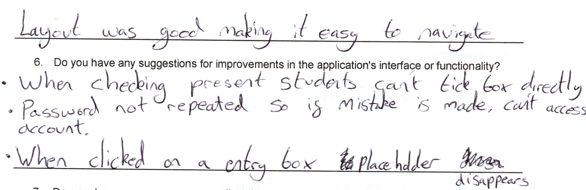 Layout was good making it easy to navigate
6. Do you have any suggestions for improvements in the application's interface or functionality?
• When checking present students can't tick box directly
• Password not repeated so is mistake is made, can't access
account.
• When clicked on a entry box placeholder
disappears